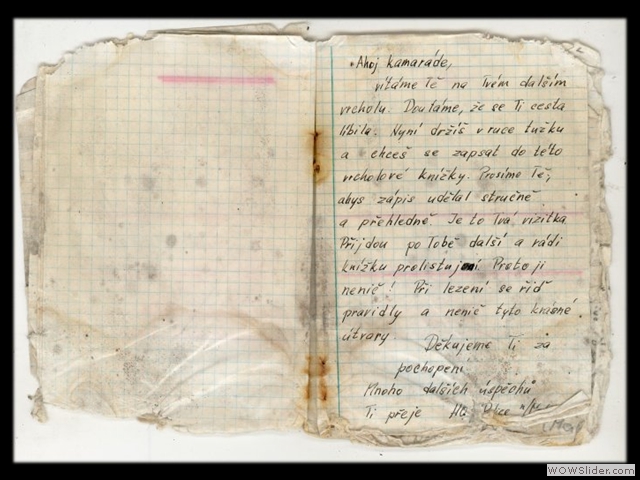 Ahoj kamaráde,
vítáme Tě na Tvém dalším
vrcholu. Doufáme, že se Ti cesta
líbila. Nyní držíš v ruce tužku
a chceš se zapsat do této
vrcholové knížky. Prosíme Tě,
abys zápis udělal stručně
a přehledně. Je to Tvá vizitka
Příjdou po Tobě další a rádi
knížku prolistují Proto ji
nenič! Při lezení se řiď
pravidly a nenič tyto krásné
útvary.
Děkujeme Ti za
pochopení
Mnoho dalších úspěchů
Ti přeje HO
WOWSlider.com